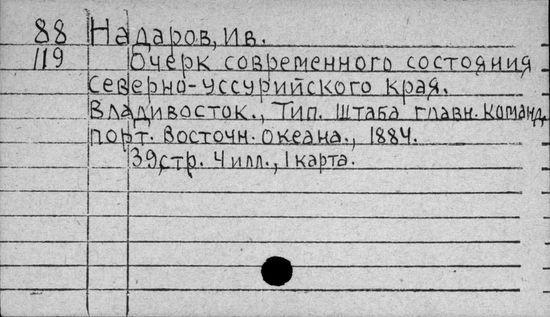 88 Надаров, Ив.
119 Очерк современного состояния
Северно-Уссурийского края.
Владивосток., Тип. Штаба главн. команд.
порт. Восточн. океана., 1884.
39, стр. 4 илл., 1 карта.